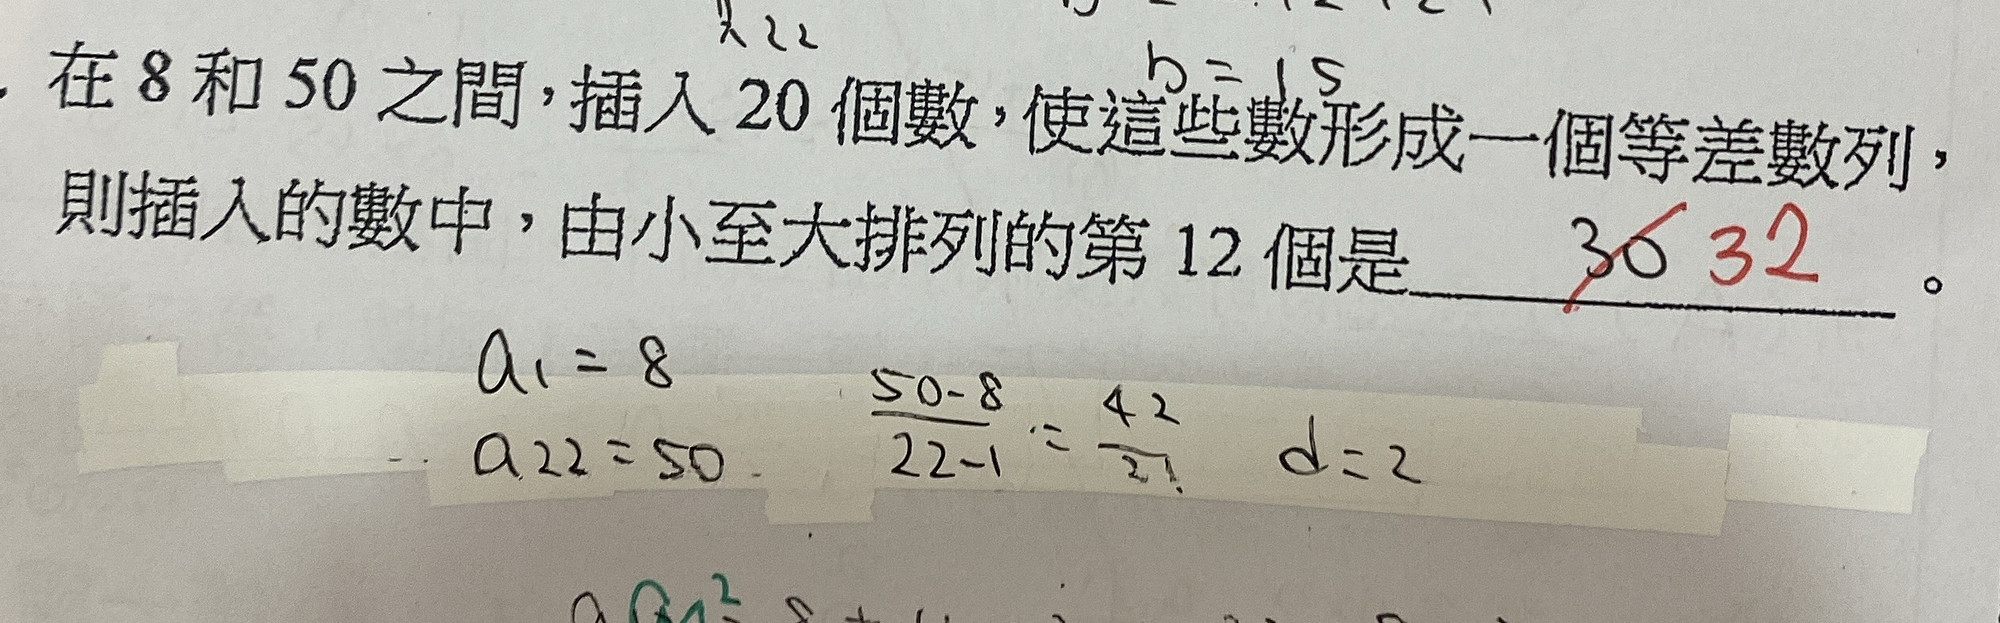 在 8 和 50 之間，插入 20 個數，使這些數形成一個等差數列，
b = 15
則插入的數中，由小至大排列的第 12 個是 30 32 。
a1 = 8
a22 = 50
50-8 / 22-1 = 42 / 21
d = 2